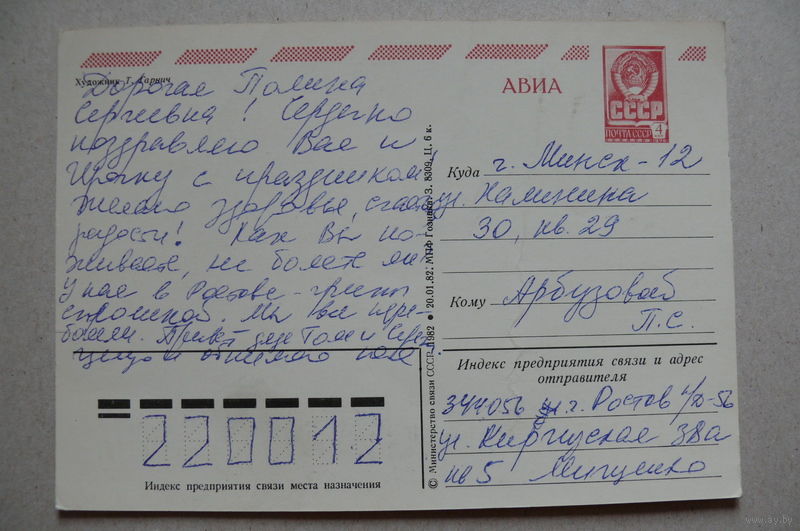 Художник Т. Гарнич
Дорогая Полина
Сергеевна! Сердечно
поздравляю Вас и
Ирочку с праздником
Желаю здоровья, счастья,
радости! Как Вы по-
живаете, не болеете ли?
У нас в Ростове - грипп
страшной. Мы все пере-
болели. Привет
целую и обнимаю
АВИА
СССР
ПОЧТА СССР
4
Куда г. Минск-12
ул. Калинина
30, кв. 29
Кому Арбузовой
П.С.
Индекс предприятия связи и адрес
отправителя
344056 г. Ростов н/Д-56
ул. Киргизская 38а
кв 5 Мищенко
220012
Индекс предприятия связи места назначения
© Министерство связи СССР. 1982 • 20.01.82. МПФ Гознака. З. 8309. Ц. 6 к.
www.ay.by